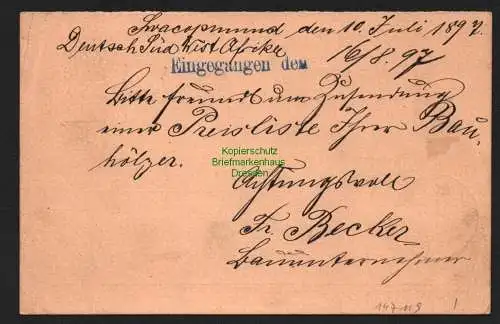 Swacopmund den 10. Juli 1897.
Deutsch Süd West Afrika
16/8. 97
Eingegangen den
Bitte freundl um Zusendung
einer Preisliste Ihrer Bau-
hölzer.
Kopierschutz
Briefmarkenhaus
Dresden
Achtungsvoll
Fr. Becker
Bauunternehmer
147 119